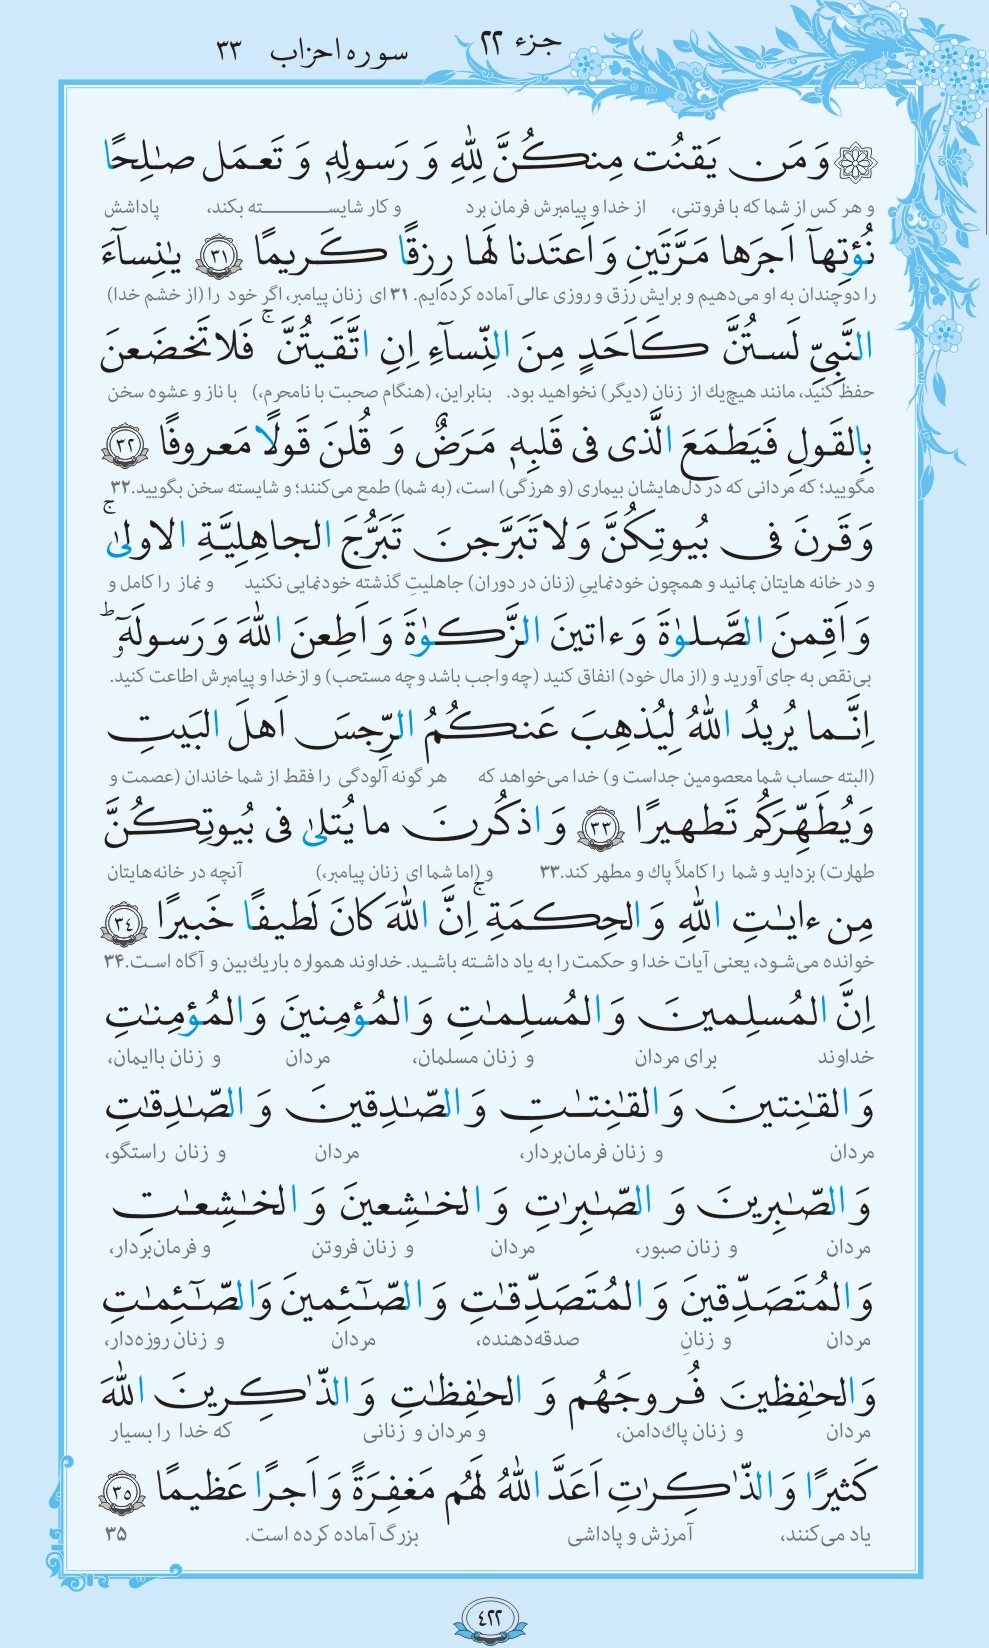 جزء ۲۲
سوره احزاب ۳۳
وَ مَن یَقنُت مِنکُنَّ لِلّٰهِ وَ رَسولِهٖ وَ تَعمَل صـٰلِحًا
و هر کس از شما که با فروتنی، از خدا و پیامبرش فرمان برد و کار شایسته بکند، پاداشش
نُؤتِهآ اَجرَها مَرَّتَینِ وَ اَعتَدنا لَها رِزقًا کَریمًا ﴿٣١﴾ یـٰنِسآءَ
را دوچندان به او می‌دهیم و برایش رزق و روزی عالی آماده کرده‌ایم. ۳۱ ای زنان پیامبر، اگر خود را (از خشم خدا)
النَّبِیِّ لَستُنَّ کَاَحَدٍ مِنَ النِّسآءِ اِنِ اتَّقَیتُنَّ ۚ فَلا تَخضَعنَ
حفظ کنید، مانند هیچ‌یك از زنان (دیگر) نخواهید بود. بنابراین، (هنگام صحبت با نامحرم،) با ناز و عشوه سخن
بِالقَولِ فَیَطمَعَ الَّذی فی قَلبِهٖ مَرَضٌ وَ قُلنَ قَولًا مَعروفًا ﴿٣٢﴾
مگویید؛ که مردانی که در دل‌هایشان بیماری (و هرزگی) است، (به شما) طمع می‌کنند؛ و شایسته سخن بگویید. ۳۲
وَ قَرنَ فی بُیوتِکُنَّ وَ لا تَبَرَّجنَ تَبَرُّجَ الجاهِلِیَّةِ الاولیٰ ۚ
و در خانه هایتان بمانید و همچون خودنماییِ (زنان در دوران) جاهلیتِ گذشته خودنمایی نکنید و نماز را کامل و
وَ اَقِمنَ الصَّلوٰةَ وَ ءاتینَ الزَّکوٰةَ وَ اَطِعنَ اللّٰهَ وَ رَسولَهٗٓ ۚ ط
بی‌نقص به جای آورید و (از مال خود) انفاق کنید (چه واجب باشد وچه مستحب) و ازخدا و پیامبرش اطاعت کنید.
اِنَّما یُریدُ اللّٰهُ لِیُذهِبَ عَنکُمُ الرِّجسَ اَهلَ البَیتِ
(البته حساب شما معصومین جداست و) خدا می‌خواهد که هر گونه آلودگی را فقط از شما خاندان (عصمت و
وَ یُطَهِّرَکُم تَطهیرًا ﴿٣٣﴾ وَ اذکُرنَ ما یُتلیٰ فی بُیوتِکُنَّ
طهارت) بزداید و شما را کاملاً پاك و مطهر کند. ۳۳ و (اما شما ای زنان پیامبر،) آنچه در خانه‌هایتان
مِن ءایـٰتِ اللّٰهِ وَ الحِکمَةِ ۚ اِنَّ اللّٰهَ کانَ لَطیفًا خَبیرًا ﴿٣٤﴾
خوانده می‌شود، یعنی آیات خدا و حکمت را به یاد داشته باشید. خداوند همواره باریك‌بین و آگاه است. ۳۴
اِنَّ المُسلِمینَ وَ المُسلِمـٰتِ وَ المُؤمِنینَ وَ المُؤمِنـٰتِ
خداوند برای مردان و زنان مسلمان، مردان و زنان باایمان،
وَ القـٰنِتینَ وَ القـٰنِتـٰتِ وَ الصّـٰدِقینَ وَ الصّـٰدِقـٰتِ
مردان و زنان فرمان‌بردار، مردان و زنان راستگو،
وَ الصّـٰبِرینَ وَ الصّـٰبِرٰتِ وَ الخـٰشِعینَ وَ الخـٰشِعـٰتِ
مردان و زنان صبور، مردان و زنان فروتن و فرمان‌بردار،
وَ المُتَصَدِّقینَ وَ المُتَصَدِّقـٰتِ وَ الصّـٰٓئِمینَ وَ الصّـٰٓئِمـٰتِ
مردان و زنانِ صدقه‌دهنده، مردان و زنان روزه‌دار،
وَ الحـٰفِظینَ فُروجَهُم وَ الحـٰفِظـٰتِ وَ الذّٰکِرینَ اللّٰهَ
مردان و زنان پاك‌دامن، و مردان و زنانی که خدا را بسیار
کَثیرًا وَ الذّٰکِرٰتِ اَعَدَّ اللّٰهُ لَهُم مَغفِرَةً وَ اَجرًا عَظیمًا ﴿٣٥﴾
یاد می‌کنند، آمرزش و پاداشی بزرگ آماده کرده است. ۳۵
٤٢٢